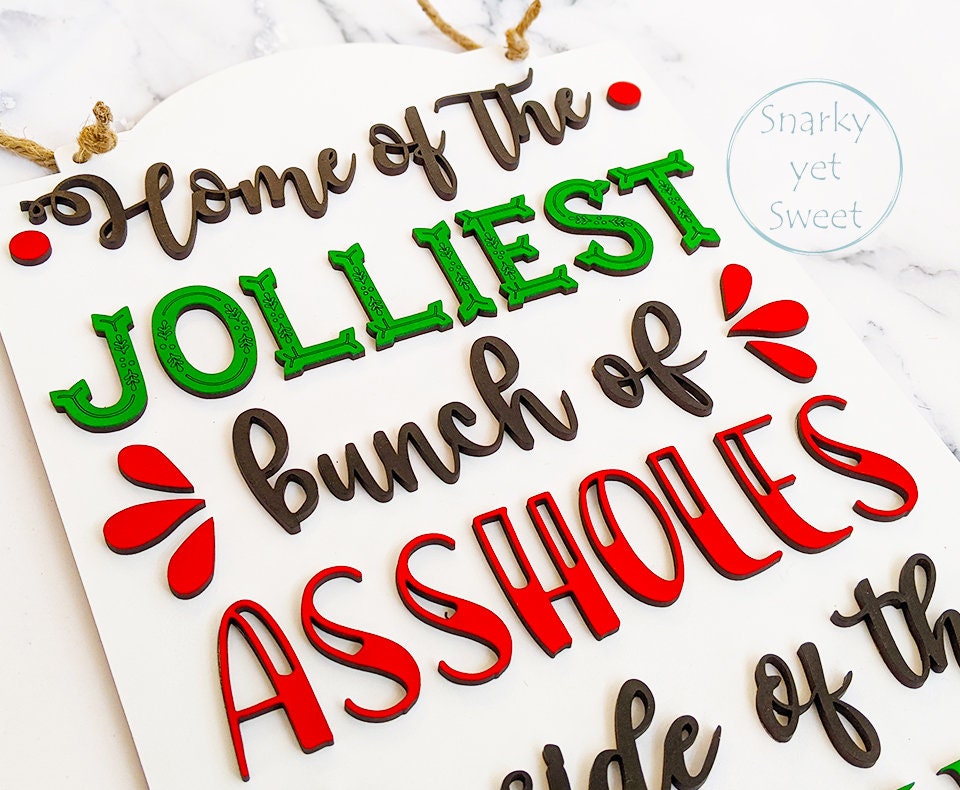 Home of the
JOLLIEST
bunch of
ASSHOLES
of
Snarky
yet
Sweet